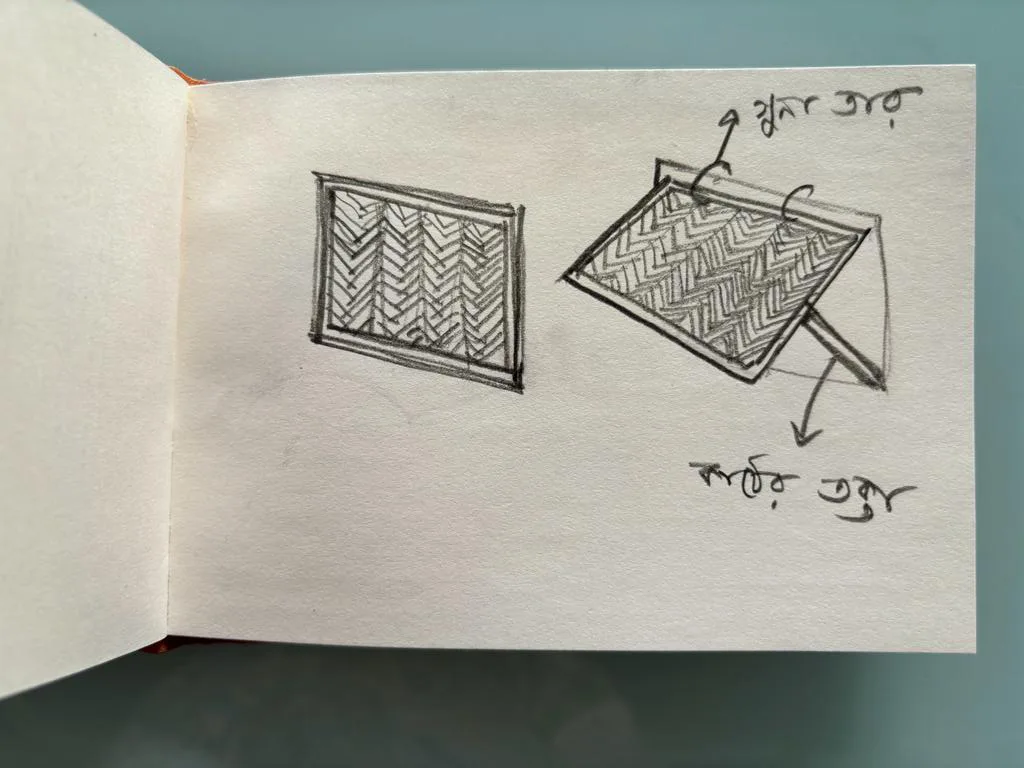 গুনা তার
কাঠের তক্তা